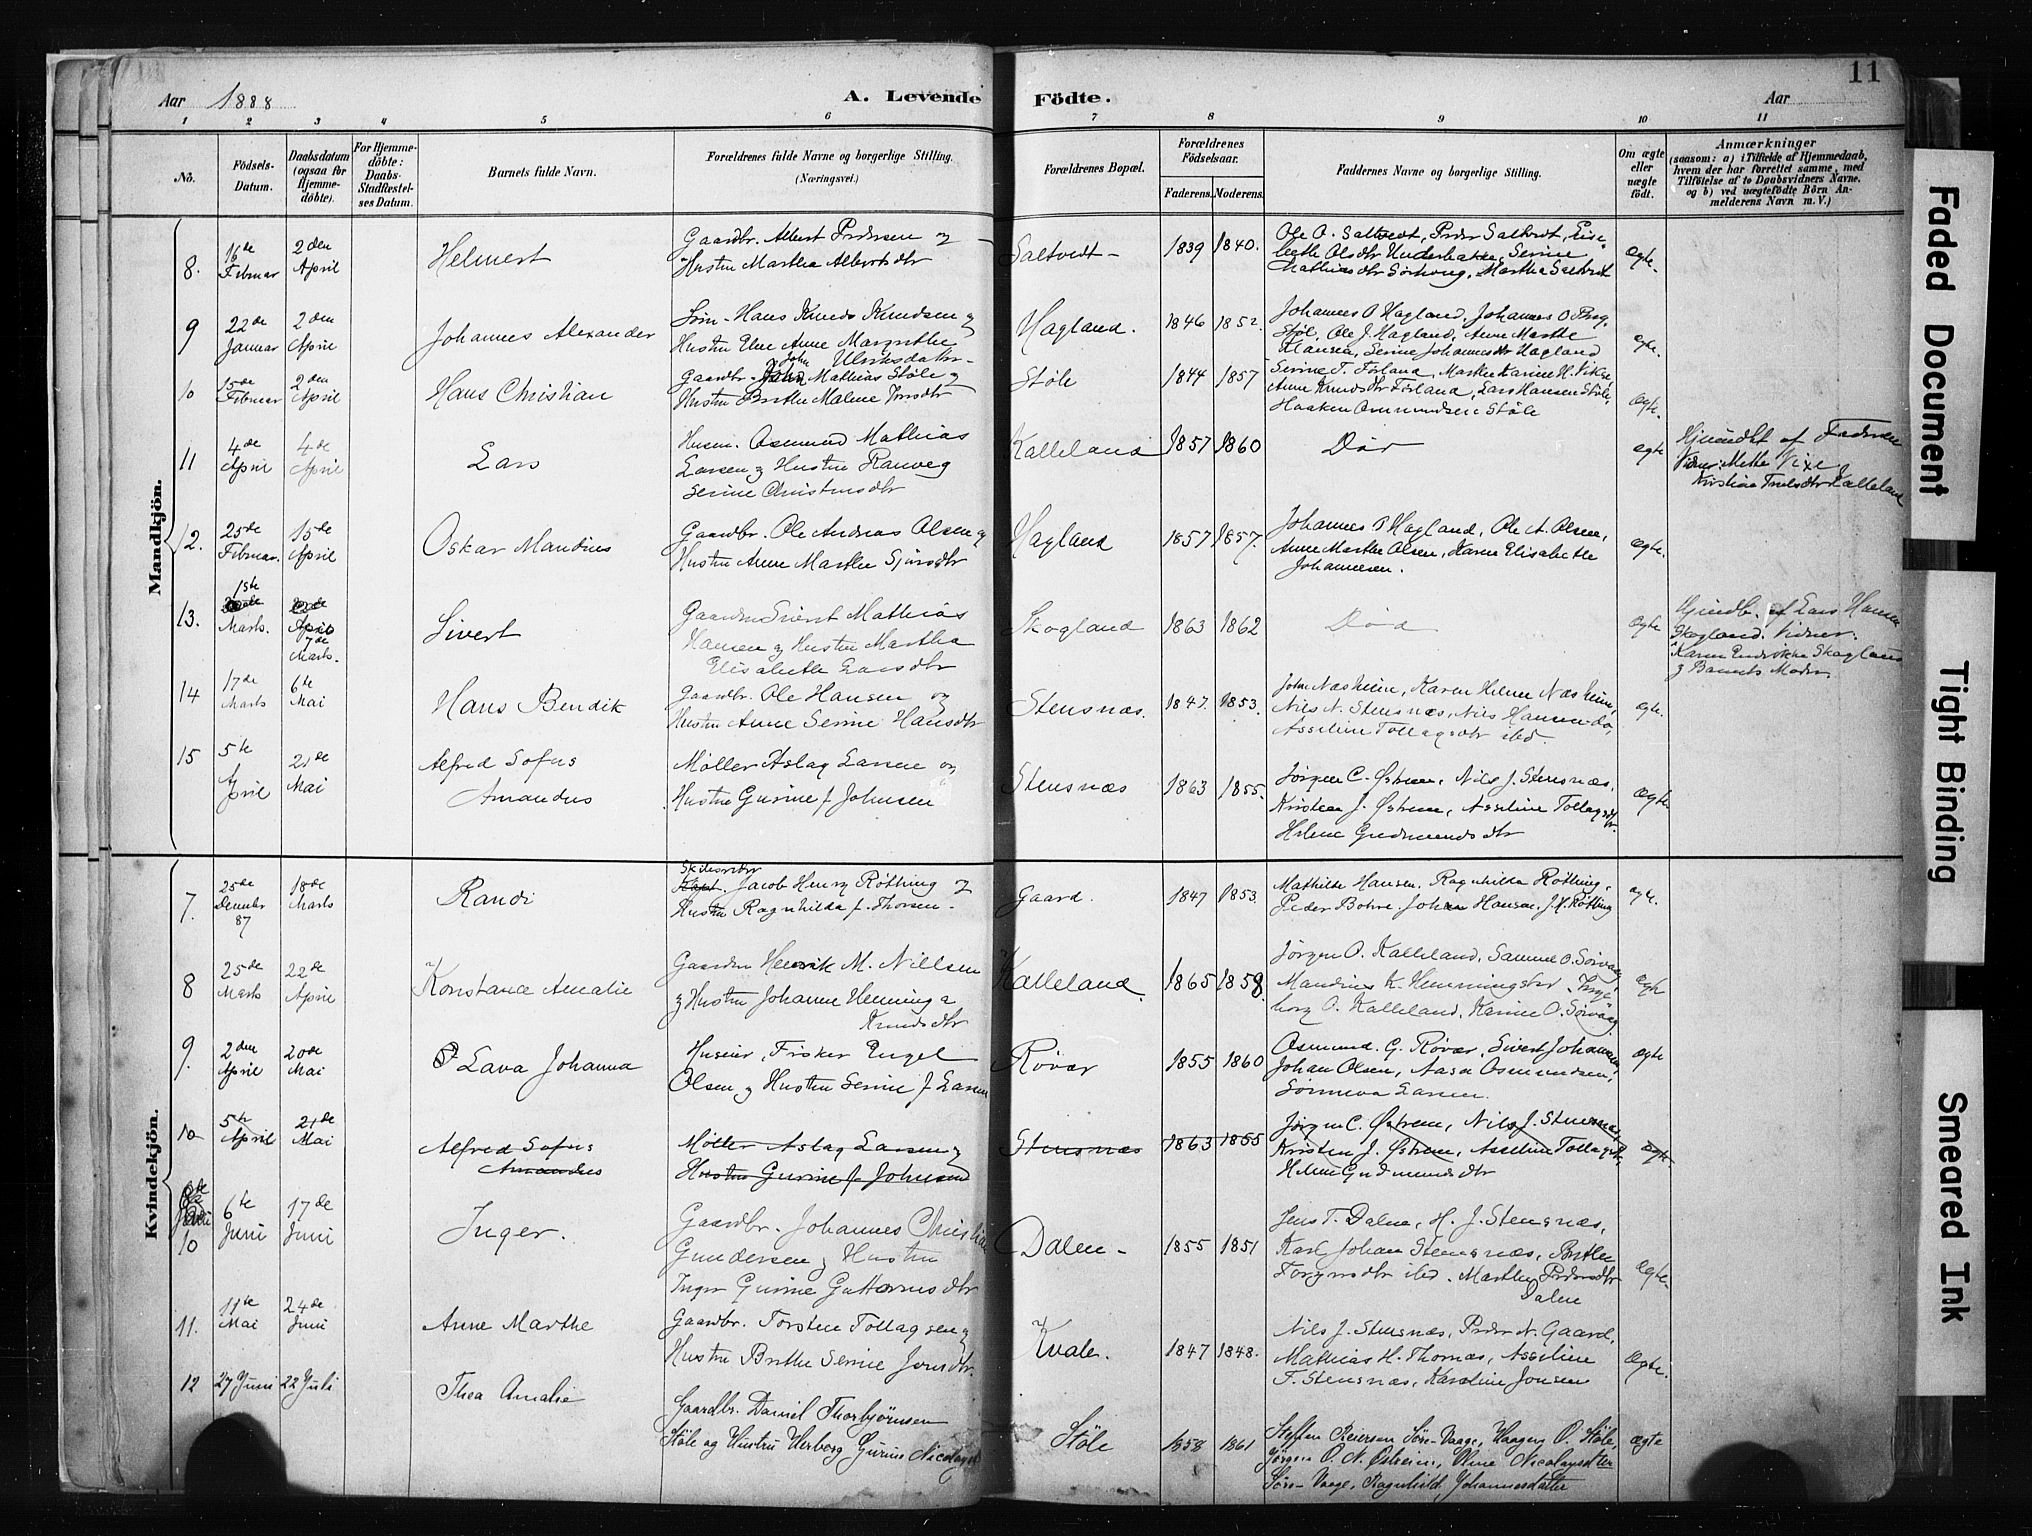 Aar 1888
A. Levende Födte.
Aar
11
1 2 3 4 5 6 7 8 9 10 11
No.
Födsels-Datum.
Daabsdatum (ogsaa for Hjemme-döbte).
For Hjemme-döbte: Daabs-Stadfæstel-ses Datum.
Barnets fulde Navn.
Forældrenes fulde Navne og borgerlige Stilling.
(Næringsvei.)
Forældrenes Bopæl.
Forældrenes Födselsaar.
Faderens. Moderens.
Faddernes Navne og borgerlige Stilling.
Om ægte eller uægte födt.
Anmærkninger
(saasom: a) i Tilfælde af Hjemmedaab,
hvem der har forrettet samme, med
Tilföielse af to Daabsvidners Navne.
og b) ved uægtefödte Börn An-
melderens Navn m. V.)
Mandkjön.
8. 16de Februar 2den April Helmert
Gaardbr. Albert Pedersen og
Hustru Martha Albertsdtr
Saltvedt 1839 1840.
Ole O. Saltvedt, Peder Saltvedt, Elise-
bethe Olsdtr Underbakke, Serine
Mathiasdtr Sørhoug, Martha Saltvedt
Ægte.
9 22de Januar 2den April Johannes Alexander
Hans Knuds Knudsen og
Hustru Else Anne Margrethe
Ulriksdatter
Hagland. 1846 1852.
Johannes O Hagland, Johannes O
Støl, Ole J. Hagland, Anne Marthe
Hansen, Serine Johannesdtr Hagland
ægte.
10 15de Februar 2den April Hans Christian
Gaardbr. John Mathias Støle og
Hustru Berthe Malene
Støle 1844 1857
Serine T. Førland, Marthe Karine H. Vikse
Anne Knudsdtr Førland, Lars Hansen Støle,
Haaken Ommundsen Støle
Ægte.
11 4de April 4de April Lars
Husm. Osmund Mathias
Larsen og Hustru Ranveg
Serine Christensdtr
Kalleland 1857 1860 Død ægte
Hjemdøbt af Faderen
Vidner: Mette Vixe
Kristine Truelsdtr Kalleland
12. 25de Februar. 15de April Oskar Mandius
Gaardbr. Ole Andreas Olsen og
Hustru Anne Marthe Sjursdtr
Hagland 1857 1857.
Johannes O Hagland, Ole A. Olsen,
Anne Marthe Olsen, Karen Elisabethe
Johannesen.
Ægte.
13. 1ste Marts. 7de Marts. Sivert
Gaardm Sivert Mathias
Hansen og Hustru Martha
Elisabethe Larsdtr
Skogland 1863 1862 Død Ægte
Hjemdb. af Lars Hansen
Skogland. Vidner.
Karen Skogland
og Barnets Moder
14 17de Marts 6te Mai Hans Bendik
Gaardbr. Ole Hansen og
Hustru Anne Serine Hansdtr
Stensnæs. 1847. 1853.
John Næsheim, Karen Helene Næsheim,
Nils N. Stensnæs, Nils Hansen do,
Asseline Tollagsdtr ibd.
ægte.
15 5te April 21de Mai Alfred Sofus
Amandus
Møller Aslag Larsen og
Hustru Gurine f Johnsen
Stensnæs 1863 1855.
Jørgen C. Østrem, Nils J. Stensnæs,
Kristen J. Østrem, Asseline Tollagsdtr.
Helene Gudmundsdtr
Ægte.
Kvindekjön.
7. 25de December 87 18de Marts Randi
Jacob Henry Røthing og
Hustru Ragnhilda f. Thorsen.
Gaard. 1847 1853.
Mathilde Hansen. Ragnhilda Røthing,
Peder Bohre, Johan Hansen, J. H. Røthing
ægte.
8 25de Marts 22de April Konstance Amalie
Gaardm Henrik M. Nielsen
og Hustru Johanne Henninga
Knudsdtr
Kalleland. 1865 1858.
Jørgen O. Kalleland, Samuel O. Sørvaag,
Mandius K. Inge-
borg O. Kalleland, Karine O. Sørvaag
ægte
9. 2den April 20de Mai Lava Johanna
Huseier, Fisker Engel
Olsen og Hustru Serine f Larsen
Røvær 1855 1860
Osmund. G. Røvær, Sivert Johannesen,
Johan Olsen, Aasa Osmundsen,
Sønneva Larsen.
ægte
10 5te April 21de Mai Alfred Sofus
Amandus
Møller Aslag Larsen og
Hustru Gurine f Johnsen
Stensnæs 1863 1855
Jørgen C. Østrem, Nils J. Stensnæs,
Kristen J. Østrem, Asseline Tollagsdtr,
Helene Gudmundsdtr
ægte.
10 6te Juni 17de Juni Inger.
Gaardbr. Johannes Christian
Gundersen og Hustru
Inger Gurine Guttormsdtr
Dalen 1855 1851
Jens T. Dalen, H. J. Stensnæs,
Karl Johan Stensnæs, Berthe
Torgersdtr ibd. Marthe Pedersdtr
Dalen
Ægte
11. 11te Mai 24de Juni Anne Marthe
Gaardbr. Torsten Tollagsen og
Hustru Berthe Serine Jensdtr.
Kvale. 1847 1848.
Nils J. Stensnæs, Peder N. Gaard,
Mathias H. Thomas, Asseline
T. Stensnæs, Karoline Jonsen
Ægte.
12 27 Juni 22 Juli Thea Amalie
Gaardbr. Daniel Thorbjørnsen
Støle og Hustru Herborg Gurine Nicolaysd
Støle 1858 1861
Steffen Reiersen Søre-Vaage, Vaagen O. Støle,
Jørgen O. N. Østrem, Oline Nicolaysdatter
Søre-Vaage, Ragnhild Johannesdatter
ægte
Faded Document
Tight Binding
Smeared Ink